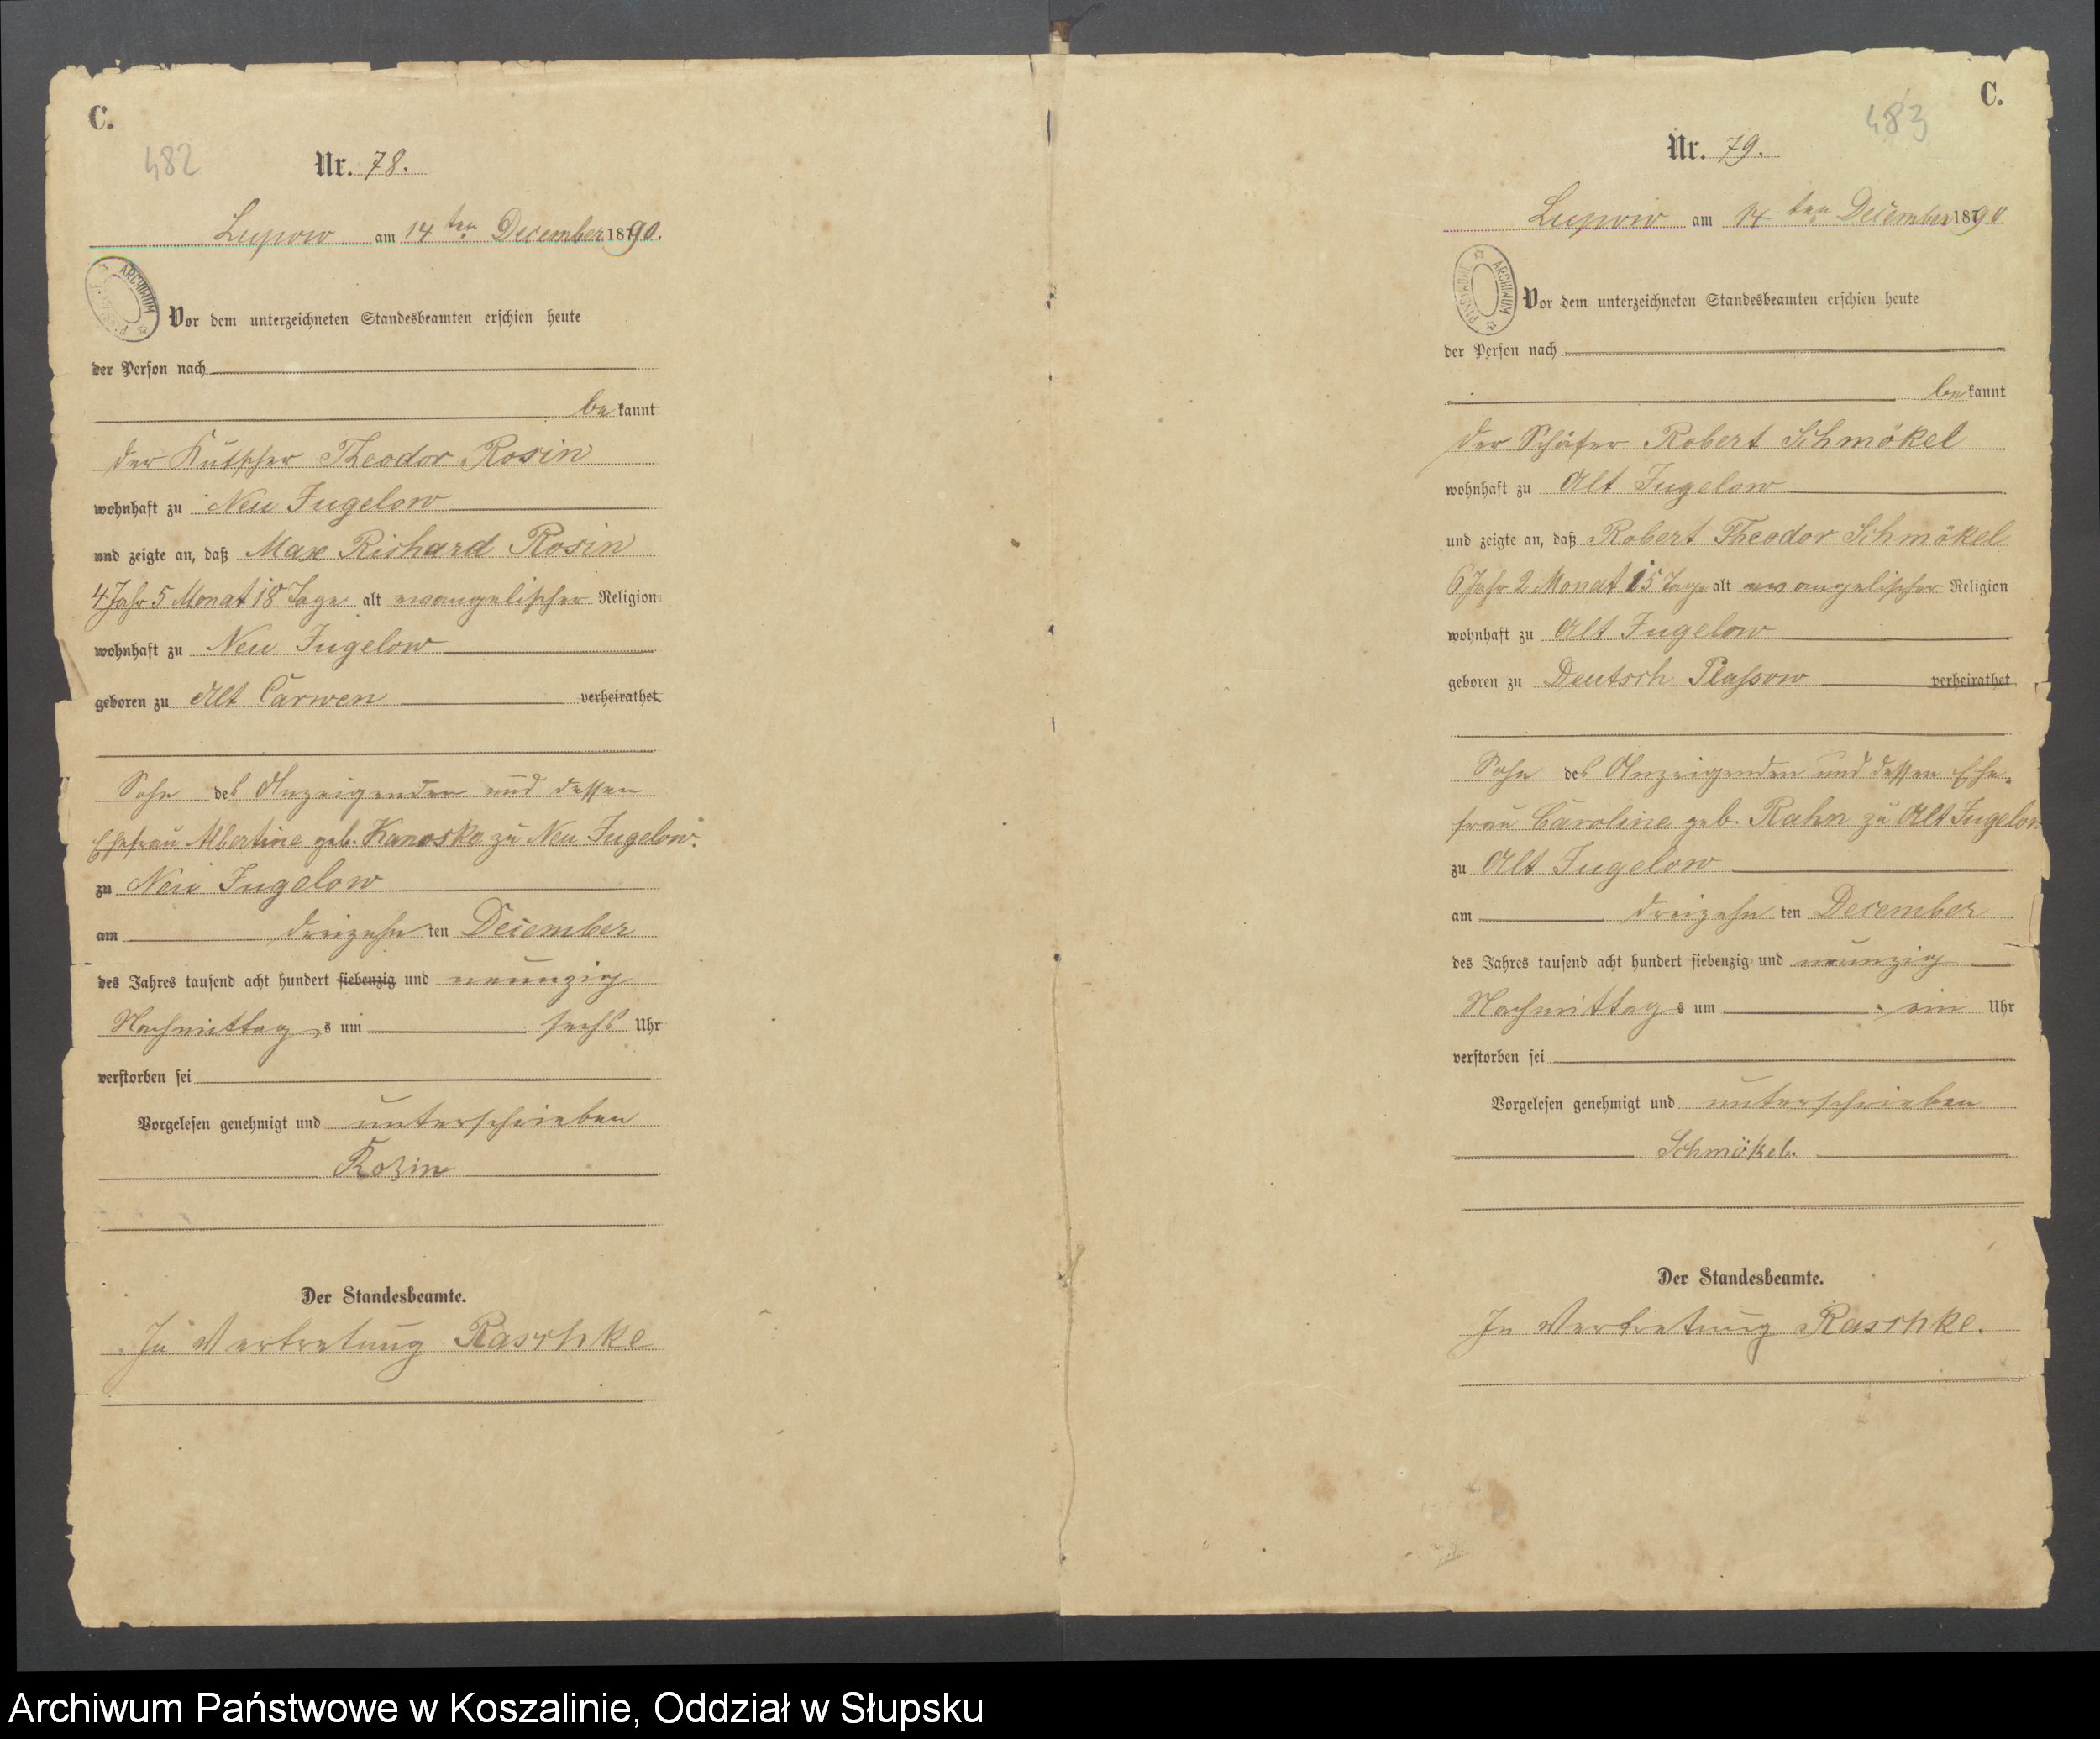 C.
482
Nr. 78.
Lupow am 14ten December 1890.
ARCHIWUM PAŃSTWOWE
Vor dem unterzeichneten Standesbeamten erschien heute
der Person nach
bekannt
der Kutscher Theodor Rosin
wohnhaft zu Neu Jugelow
und zeigte an, daß Max Richard Rosin
4 Jahr 5 Monat 18 Tage alt evangelischer Religion
wohnhaft zu Neu Jugelow
geboren zu Alt Carwen verheirathet
Sohn des Anzeigenden und dessen
Ehefrau Albertine geb. Kanosko zu Neu Jugelow.
zu Neu Jugelow
am dreizehn ten December
des Jahres tausend acht hundert siebenzig und neunzig
Nachmittags um sechs Uhr
verstorben sei
Vorgelesen genehmigt und unterschrieben
Rosin
Der Standesbeamte.
In Vertretung Raschke
C.
483
Nr. 79.
Lupow am 14ten December 1890
ARCHIWUM PAŃSTWOWE
Vor dem unterzeichneten Standesbeamten erschien heute
der Person nach
bekannt
der Schäfer Robert Schmökel
wohnhaft zu Alt Jugelow
und zeigte an, daß Robert Theodor Schmökel
6 Jahr 2 Monat 15 Tage alt evangelischer Religion
wohnhaft zu Alt Jugelow
geboren zu Deutsch Plassow verheirathet
Sohn des Anzeigenden und dessen Ehe-
frau Caroline geb. Rahn zu Alt Jugelow
zu Alt Jugelow
am dreizehn ten December
des Jahres tausend acht hundert siebenzig und neunzig
Nachmittags um ein Uhr
verstorben sei
Vorgelesen genehmigt und unterschrieben
Schmökel.
Der Standesbeamte.
In Vertretung Raschke.
Archiwum Państwowe w Koszalinie, Oddział w Słupsku